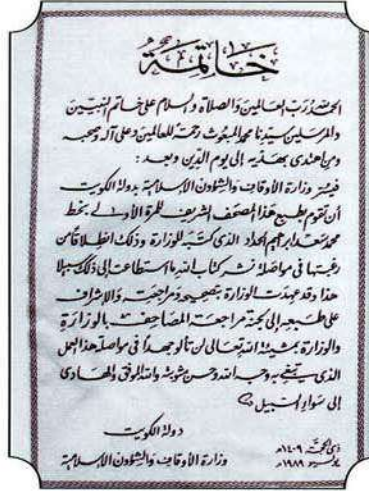 خاتمة
الحمد لله رب العالمين والصلاة والسلام على خاتم النبيين
والمرسلين سيدنا محمد المبعوث رحمة للعالمين وعلى آله وصحبه
ومن اهتدى بهديه إلى يوم الدين وبعد :
فيسر وزارة الأوقاف والشؤون الإسلامية بدولة الكويت
أن تقوم بطبع هذا المصحف الشريف للمرة الأولى بخط
محمد سعد ابراهيم الحداد الذي كتبه للوزارة وذلك انطلاقًا من
رغبتها في مواصلة نشر كتاب الله ما استطاعت إلى ذلك سبيلا
هذا وقد عهدت الوزارة بتصحيحه ومراجعته والاشراف
على طبعه إلى لجنة مراجعة المصاحف بالوزارة
والوزارة بمشيئة الله تعالى لن تألو جهدًا في مواصلة هذا العمل
الذي يبتغى به وجه الله وحسن مثوبته والله الموفق والهادي
إلى سواء السبيل
دولة الكويت
وزارة الأوقاف والشؤون الإسلامية
ذي الحجة ١٤٠٩ هـ
يوليو ١٩٨٩ م